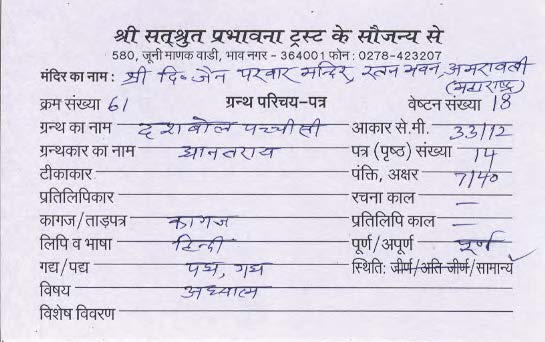 श्री सत्श्रुत प्रभावना ट्रस्ट के सौजन्य से
580, जूनी माणक वाडी, भाव नगर - 364001 फोन : 0278-423207
मंदिर का नाम : श्री दि॰ जैन परवार मन्दिर, रतन भवन, अमरावती
(महाराष्ट्र)
क्रम संख्या 61 ग्रन्थ परिचय-पत्र वेष्टन संख्या 18
ग्रन्थ का नाम दशबोल पच्चीसी आकार से.मी. 33/12
ग्रन्थकार का नाम द्यानतराय पत्र (पृष्ठ) संख्या 14
टीकाकार पंक्ति, अक्षर 7/40
प्रतिलिपिकार रचना काल —
कागज/ताड़पत्र कागज प्रतिलिपि काल —
लिपि व भाषा हिन्दी पूर्ण/अपूर्ण पूर्ण
गद्य/पद्य पद्य, गद्य स्थिति: जीर्ण/अति जीर्ण/सामान्य ✓
विषय अध्यात्म
विशेष विवरण